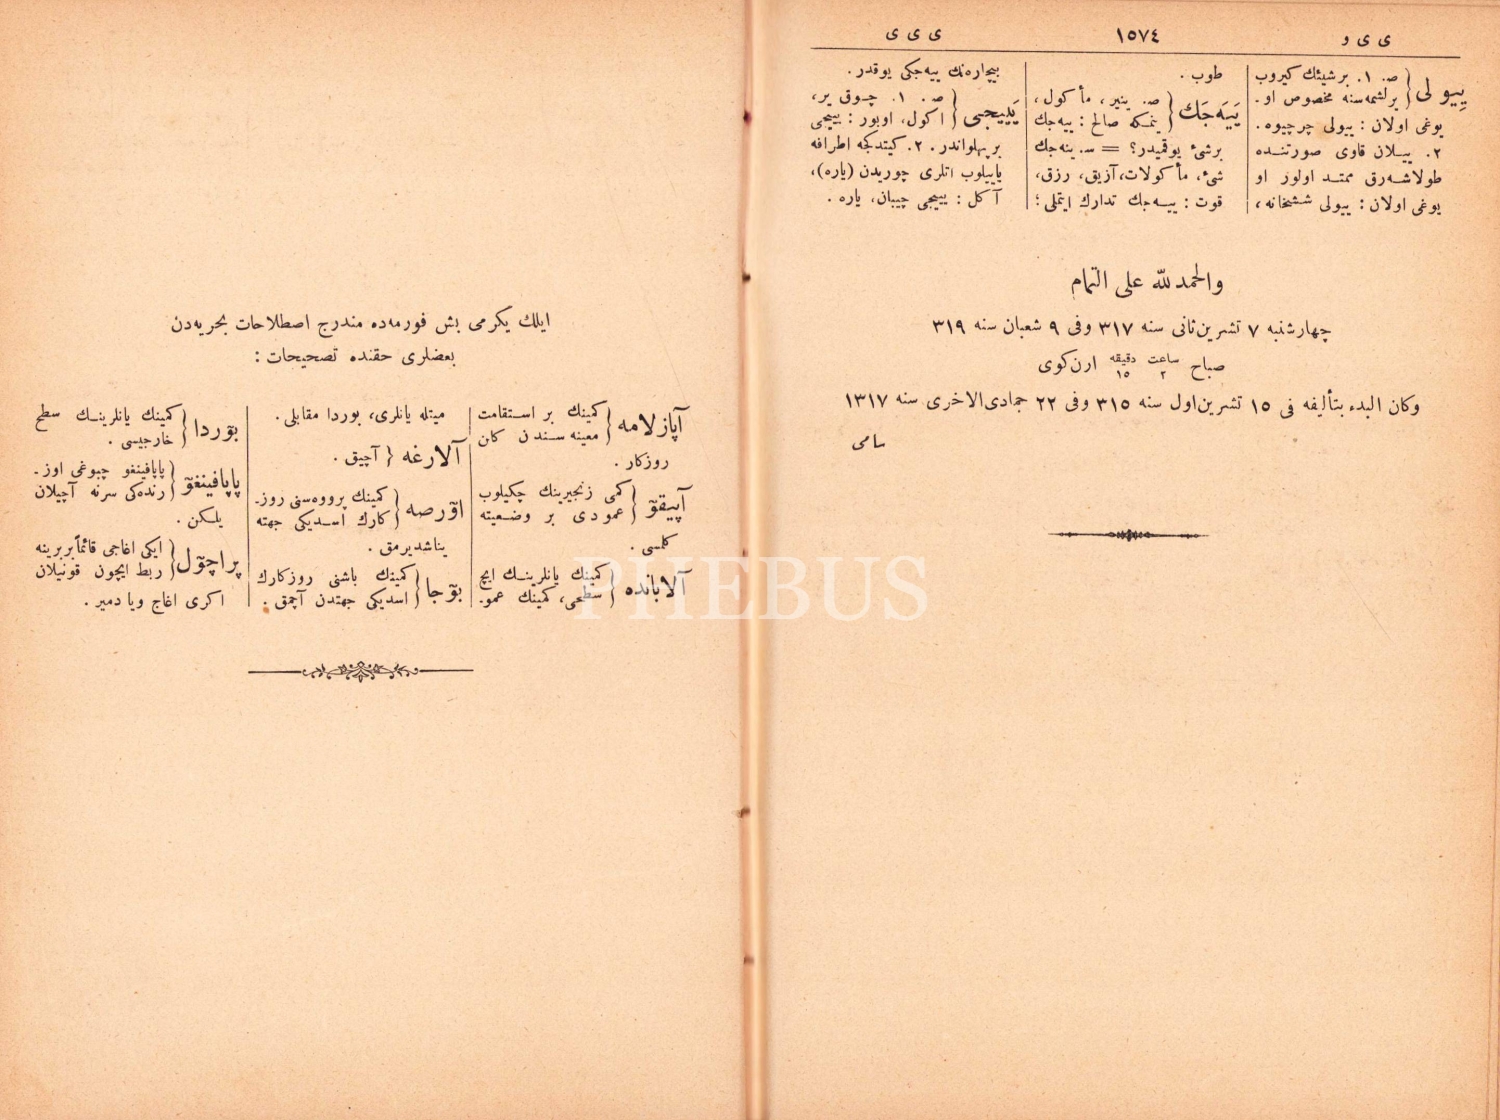 ی ی و
١٥٧٤
ی ی ی
ییولی { ص. ١. برشیئك كیروب
برلشمه‌سنه مخصوص او.
یوغی اولان : ییولی چرچیوه.
٢. ییلان قاوی صورتنده
طولاشه‌رق ممتد اولور او
یوغی اولان : ییولی ششخانه،
طوب.
ییه‌جك { ص. ینیر، مأكول،
یمكه صالح : ییه‌جك
برشیٔ یوقمیدر؟ = س. ینه‌جك
شیٔ، مأكولات، آزیق، رزق،
قوت : ییه‌جك تدارك ایتملی؛
بیچاره‌نك ییه‌جكی یوقدر.
ییجی { ص. ١. چوق یر،
اكول، اوبور : ییجی
برپهلواندر. ٢. كیتدكجه اطرافه
یاییلوب اتلری چوریدن (یاره)،
آكل : ییجی چیبان، یاره.
والحمدلله علی التمام
چهارشنبه ٧ تشرین‌ثانی سنه ٣١٧ وفی ٩ شعبان سنه ٣١٩
صباح ساعت ٢ دقیقه ١٥ ارن‌كوی
وكان البدء بتألیفه فی ١٥ تشرین‌اول سنه ٣١٥ وفی ٢٢ جمادی‌الاخری سنه ١٣١٧
سامی
ایلك یكرمی بش فورمه‌ده مندرج اصطلاحات بحریه‌دن
بعضلری حقنده تصحیحات :
آپازلامه { كمینك بر استقامت
معینه سندن كلن
روزكار.
آپیقۆ { كمی زنجیرینك چكیلوب
عمودی بر وضعیته
كلمسی.
آلاباندە { كمینك یانلرینك ایچ
سطحی، كمینك عمو.
میتله یانلری، بوردا مقابلی.
آلارغه { آچیق.
اۆرصه { كمینك پرووه‌سنی روز.
كارك اسدیكی جهته
یناشدیرمق.
بۆجا { كمینك باشنی روزكارك
اسدیكی جهتدن آچمق.
بۆردا { كمینك یانلرینك سطح
خارجیسی.
پاپافینغۆ { پاپافینغو چبوغی اوز.
رنده‌كی سرنه آچیلان
یلكن.
پراچۆل { ایكی اغاجی قائماً بربرینه
ربط ایچون قونیلان
اكری اغاج ویا دمیر.
PHEBUS